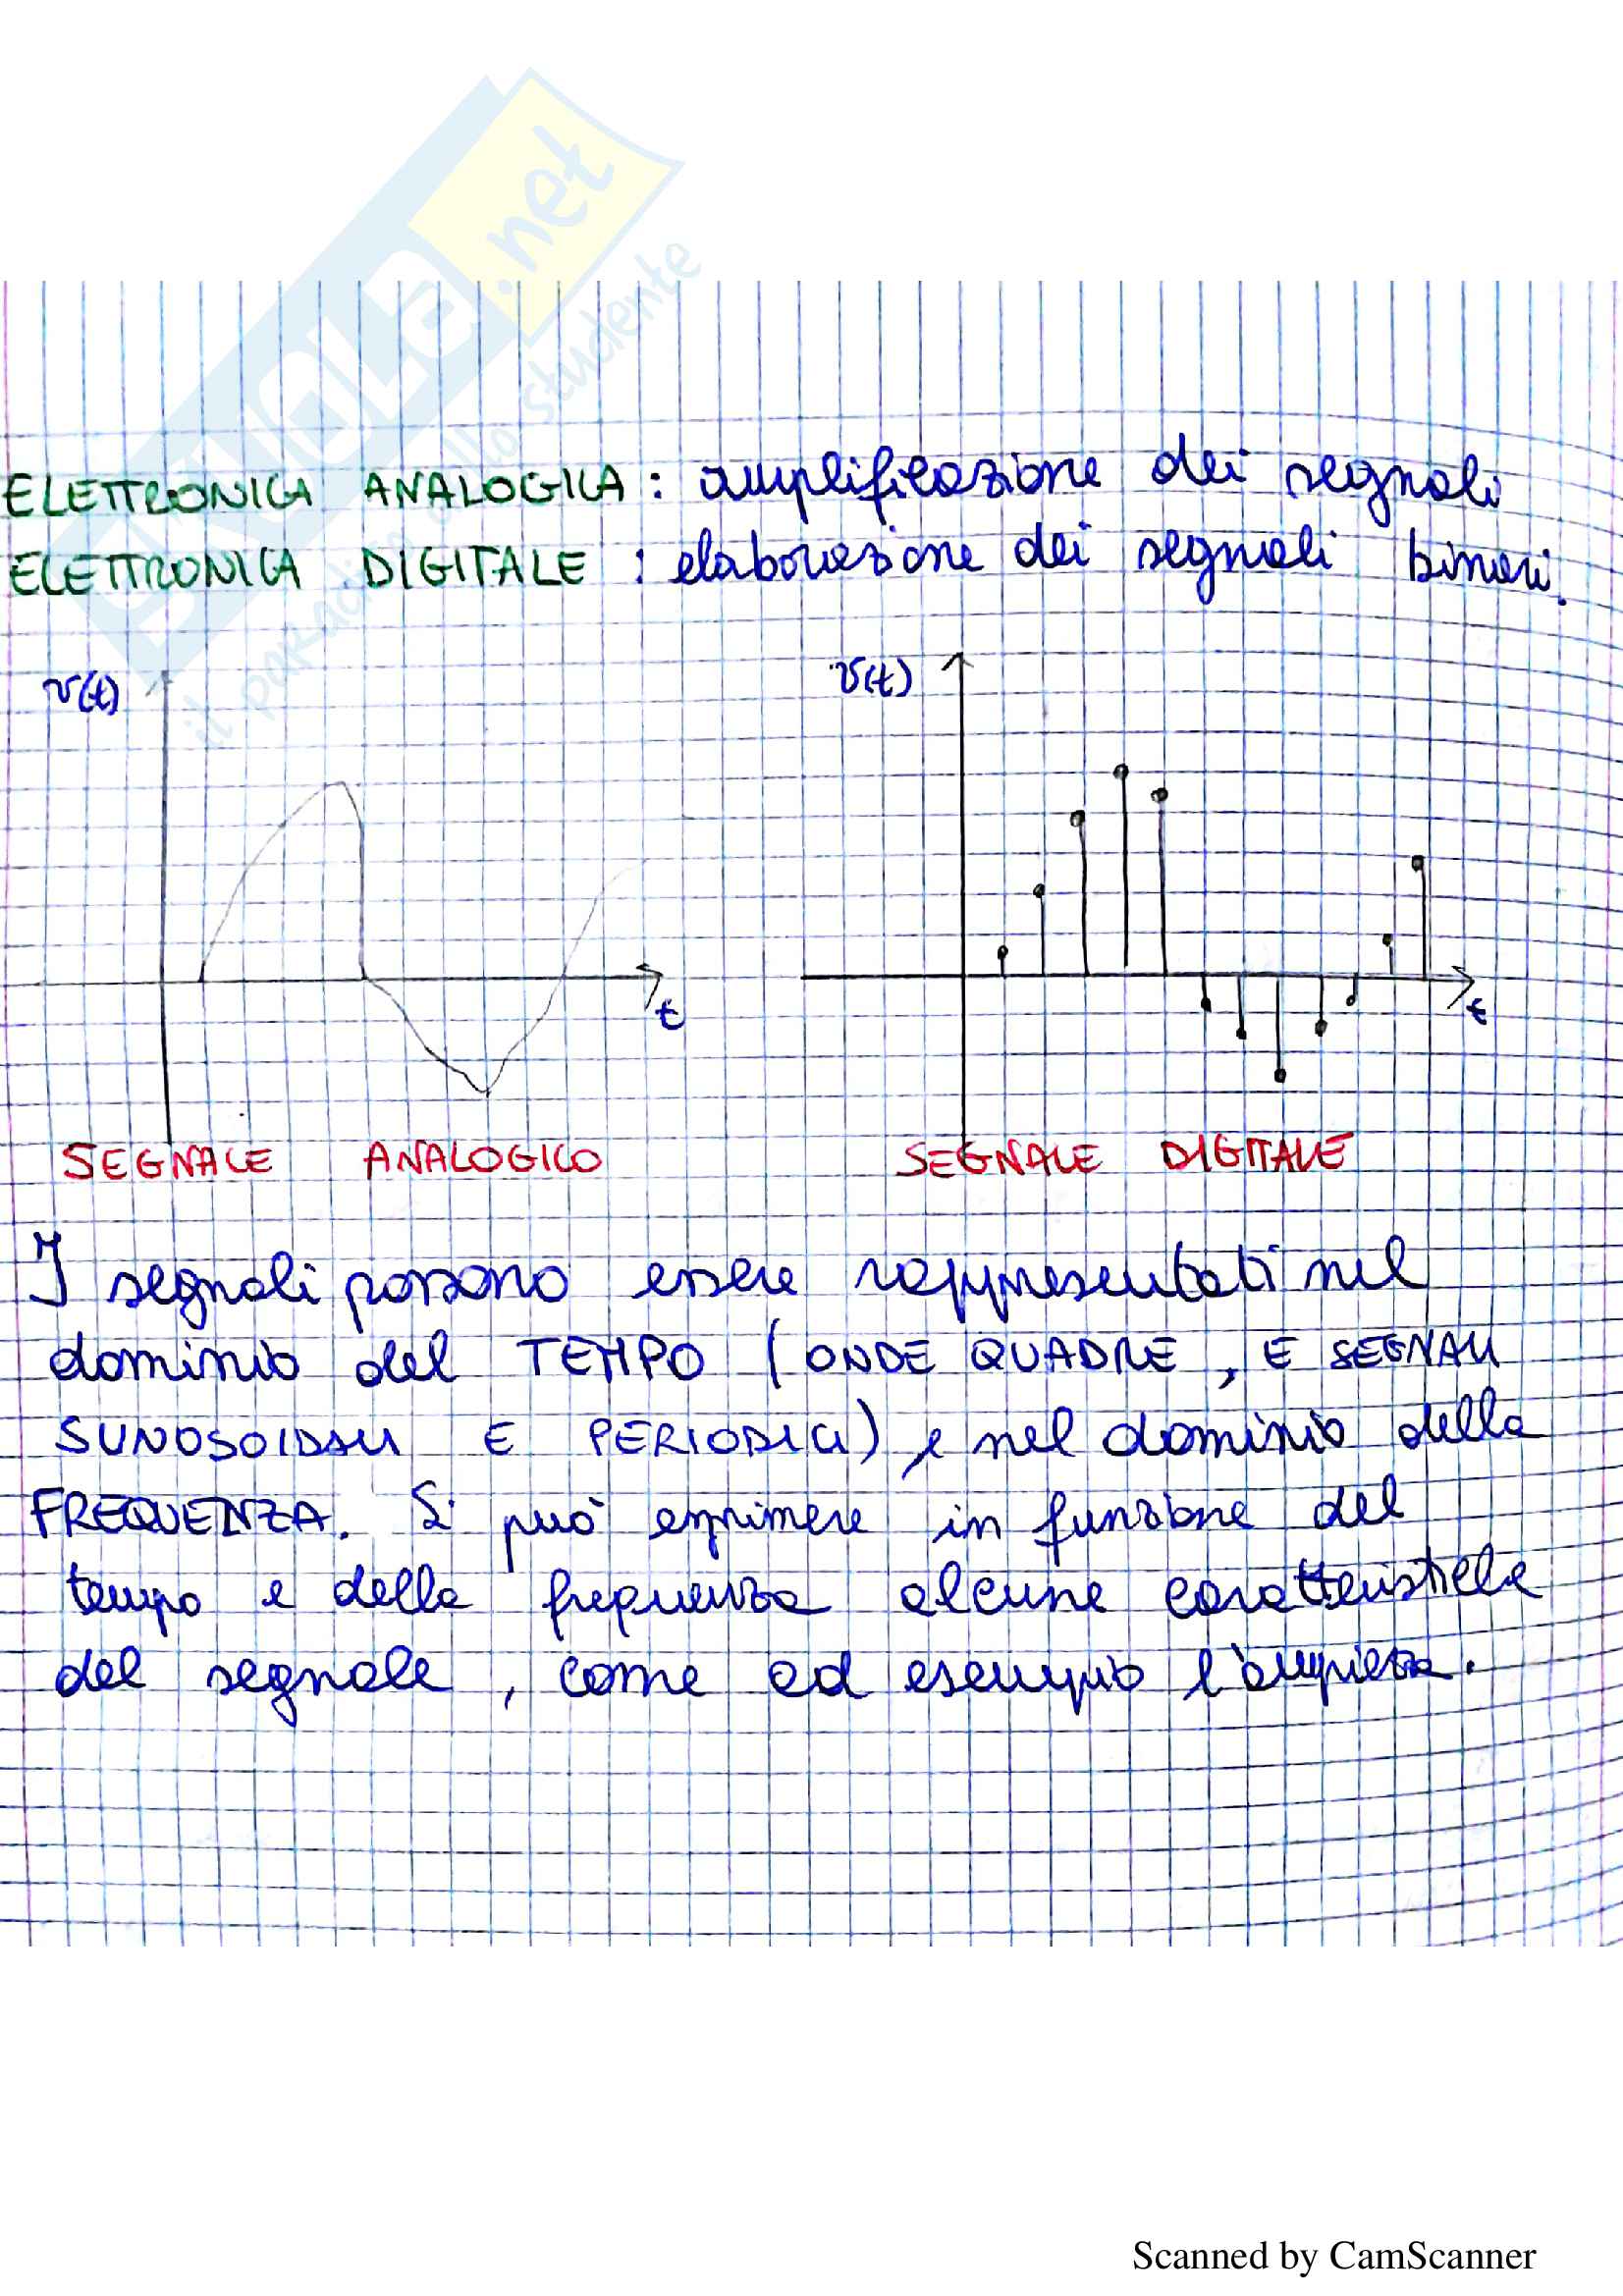 SKUOLA.net
il paradiso dello studente
ELETTRONICA ANALOGICA: amplificazione dei segnali
ELETTRONICA DIGITALE: elaborazione dei segnali binari.
v(t)
v(t)
t
t
SEGNALE ANALOGICO
SEGNALE DIGITALE
I segnali possono essere rappresentati nel
dominio del TEMPO (ONDE QUADRE, E SEGNALI
SUNOSOIDALI E PERIODICI) e nel dominio della
FREQUENZA. Si può esprimere in funzione del
tempo e della frequenza alcune caratteristiche
del segnale, come ad esempio l'ampiezza.
Scanned by CamScanner